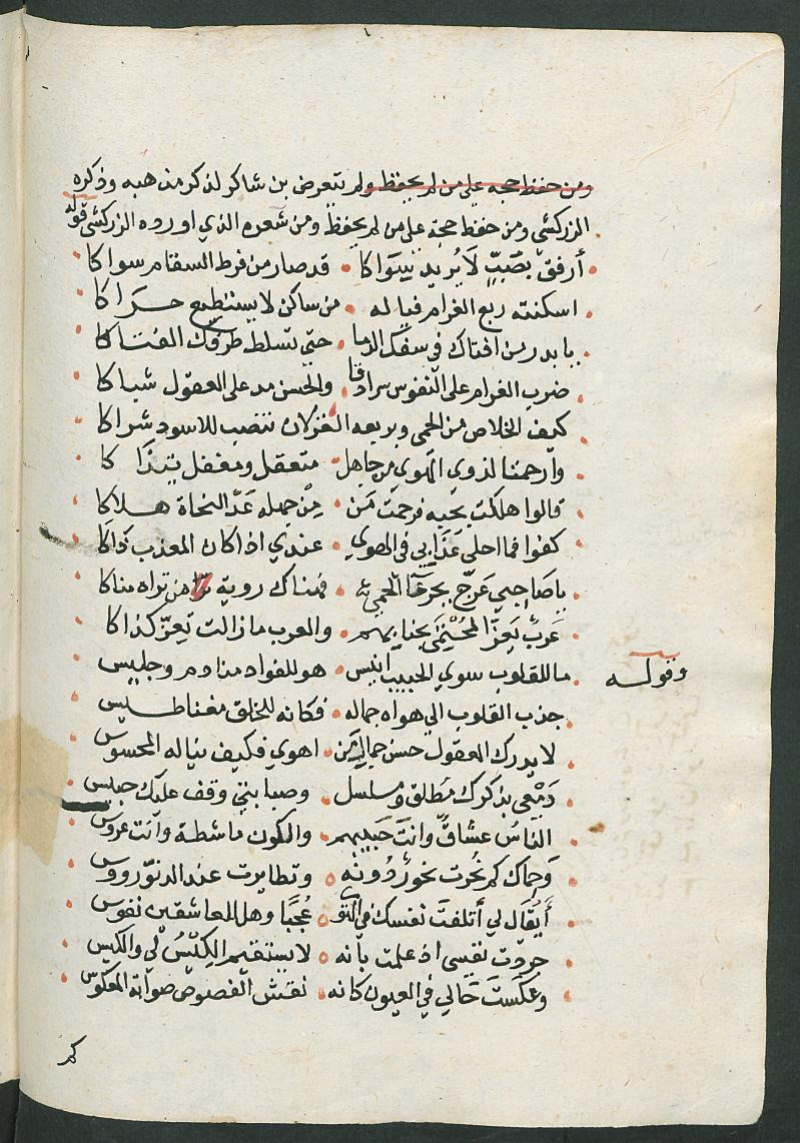 ومن حفظ حجه علي من لم يحفظ ولم يتعرض بن شاكر لذكر مذهبه وذكره
الزركشي ومن حفظ حجة علي من لم يحفظ ومن شعره الذي اورده الزركشي قوله
أرفق بصَبٍّ لا يُريد سِوَاكا • قد صار من فرط السقام سواكا
اسكنته ربع الغرام فياله • من ساكن لا يستطيع حَرَاكا
يا بدر من افتاك في سفك الدما • حتي تسلط طرفك الفتاكا
ضرب الغرام علي النفوس سرادقا • والحسن مد علي العقول شباكا
كيف الخلاص من الحمي وبربعه الغزلان تنصب للاسود شراكا
وارحمتا لذوي الهوي من جاهل • متعقل ومغفل يتذَّا كا
قالوا هلكت بحبه فرحمت مَن • مِنْ جهله عَدَّ النجاة هلاكا
كفوا فما احلي عَذَابي في الهوي • عندي اذا كان المعذب ذاكا
يا صَاحِبي عَرِّج بجرعَا الحمي • فهناك روية من تراه مناكا
عَربٌ يَعِزّ المُحْتمَي بجنابهم • والعرب ما زالت تعِزّ كذاكا
وقوله
ما للقلوب سوي الحبيب انيس • هو للفواد منادم وجليس
جذب القلوب الي هواه جماله • فكانه للخلق مغناطيس
لا يدرك المعقول حسن جمال من • اهوي فكيف يناله المحسوس
دَمْعي بذكرك مُطلق ومسلسل • وصبابتي وقف عليك حبيس
الناسُ عشاقٌ وانتَ حَبيبهم • والكون ماشطة وانت عروس
وَحِماك كم نُحرت نحور دُونه • وتطايرت عند الدنوّ رووس
أيُقَال لي أتلفتَ نفسك في الهوي • عُجبًا وهل للعاشقين نفوس
جردت نفسي اذ علمت بأنه • لا يستقيم الكِيْسُ لي والكيس
وعكستَ حَالي في العيون كانه • نقش الفصوص صوابه المعكوس